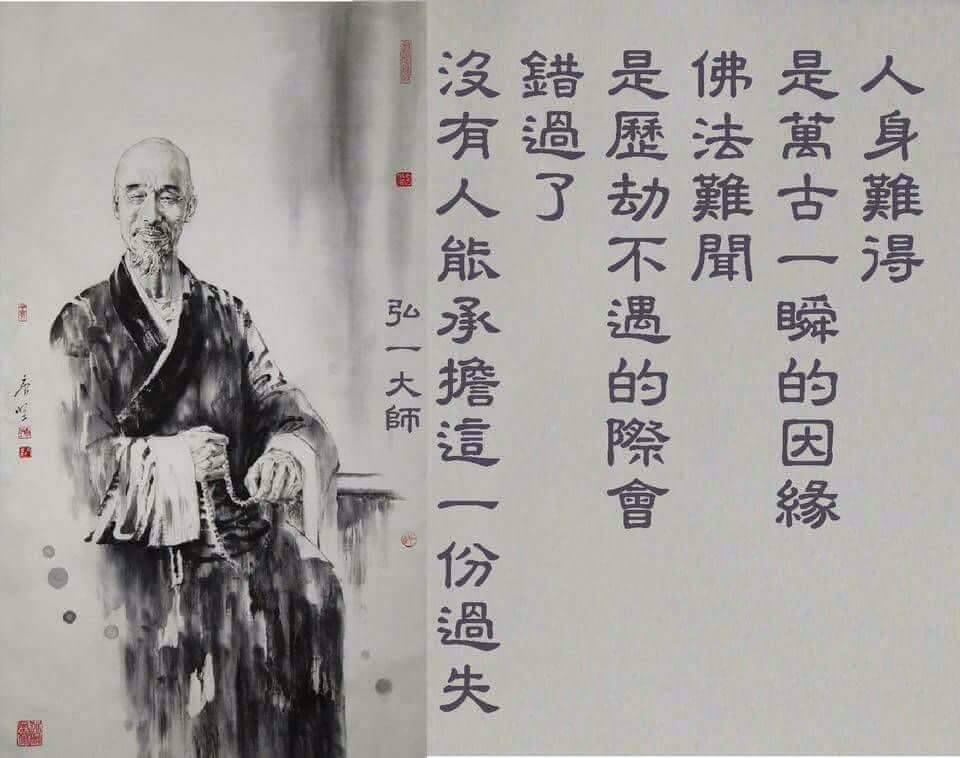 人身難得
是萬古一瞬的因緣
佛法難聞
是歷劫不遇的際會
錯過了
沒有人能承擔這一份過失
弘一大師